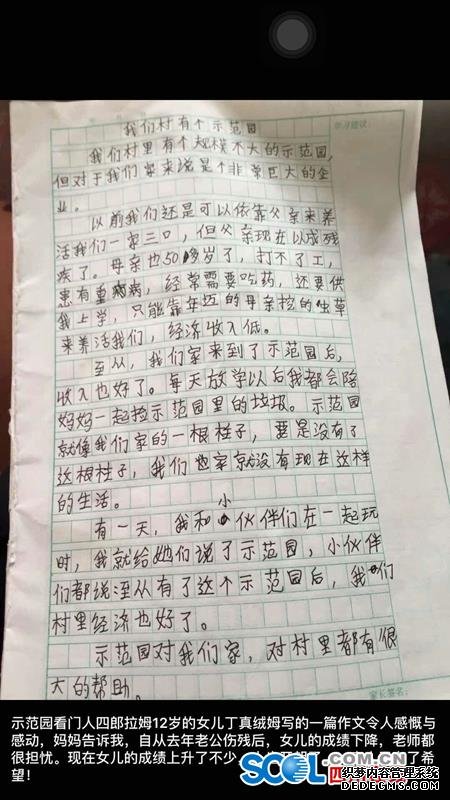 我们村有个示范园
学习建议:
我们村里有个规模不大的示范园,
但对于我们家来说是个非常巨大的企
业。
以前我们还是可以依靠父亲来养
活我们一家三口,但父亲现在以成残
疾了。母亲也50多岁了,打不了工,
患有重病,经常需要吃药,还要供
我上学,只能靠年迈的母亲挖的虫草
来养活我们,经济收入低。
至从,我们家来到了示范园后,
收入也好了。每天放学以后我都会陪
妈妈一起捡示范园里的垃圾。示范园
就像我们家的一根柱子,要是没有了
这根柱子,我们也家就没有现在这样
的生活。
有一天,我和小伙伴们在一起玩
时,我就给她们说了示范园,小伙伴
们都说至从有了这个示范园后,我们
村里经济也好了。
示范园对我们家,对村里都有很
大的帮助。
家长签名:
示范园看门人四郎拉姆12岁的女儿丁真绒姆写的一篇作文令人感慨与
感动,妈妈告诉我,自从去年老公伤残后,女儿的成绩下降,老师都
很担忧。现在女儿的成绩上升了不少
了希
望!
SCOL.COM
织梦内容管理系统
DEDECMS.COM